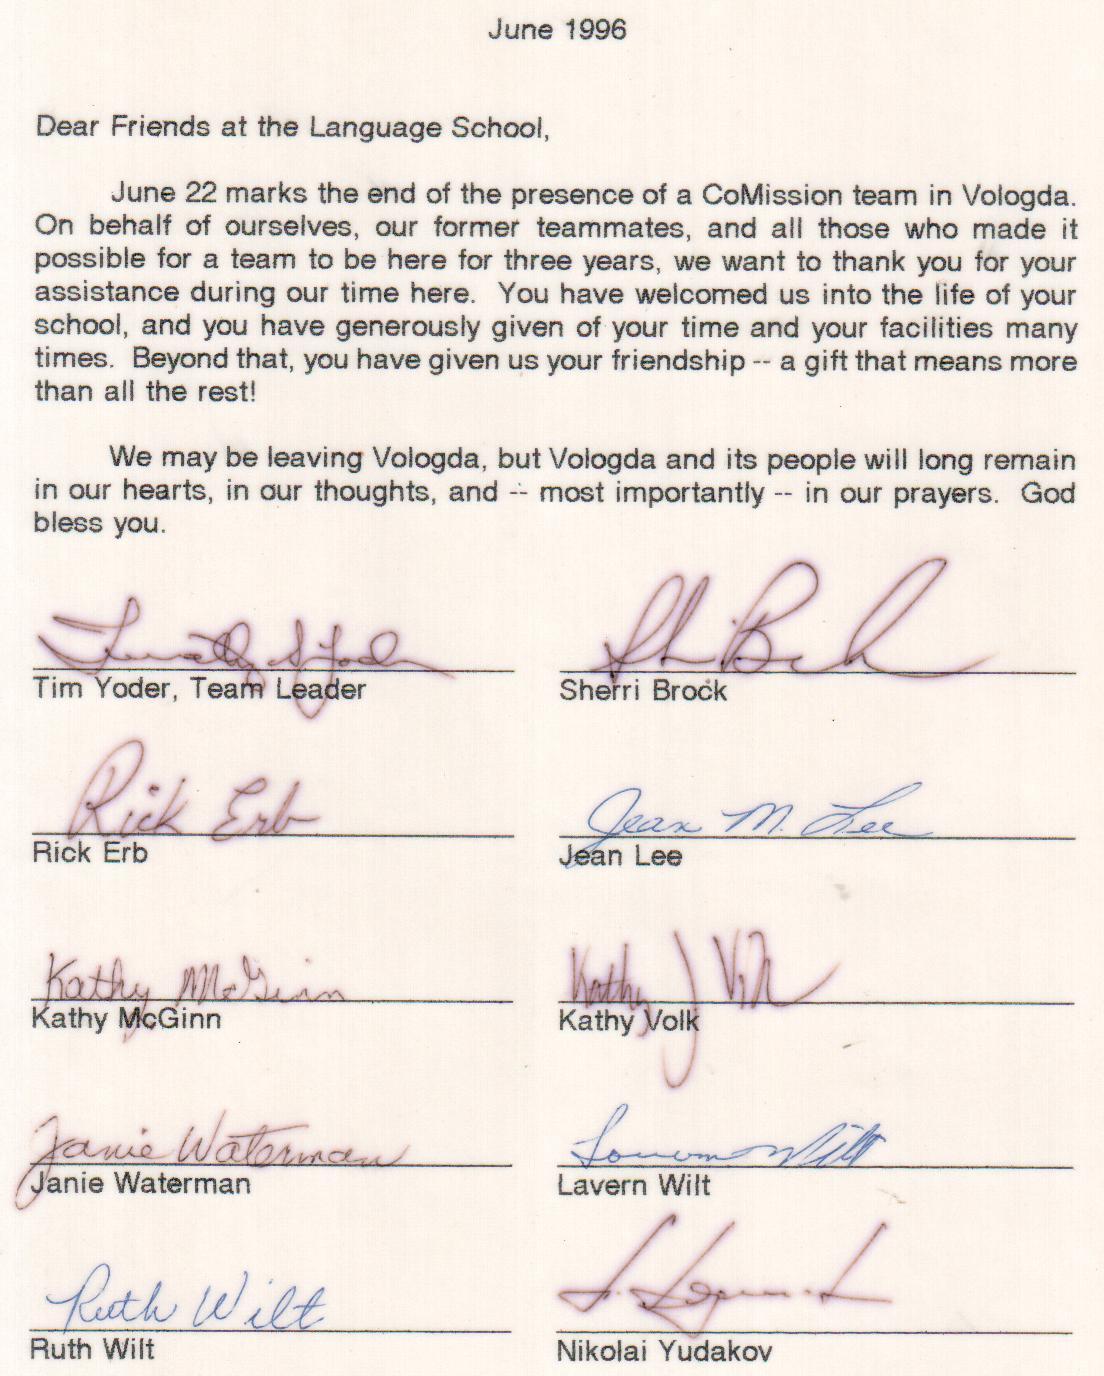 June 1996
Dear Friends at the Language School,
June 22 marks the end of the presence of a CoMission team in Vologda.
On behalf of ourselves, our former teammates, and all those who made it
possible for a team to be here for three years, we want to thank you for your
assistance during our time here. You have welcomed us into the life of your
school, and you have generously given of your time and your facilities many
times. Beyond that, you have given us your friendship -- a gift that means more
than all the rest!
We may be leaving Vologda, but Vologda and its people will long remain
in our hearts, in our thoughts, and -- most importantly -- in our prayers. God
bless you.
Timothy S Yoder
Tim Yoder, Team Leader
Sherri Brock
Rick Erb
Rick Erb
Jean M. Lee
Jean Lee
Kathy McGinn
Kathy McGinn
Kathy J Volk
Kathy Volk
Janie Waterman
Janie Waterman
Lavern Wilt
Lavern Wilt
Ruth Wilt
Ruth Wilt
Nikolai Yudakov